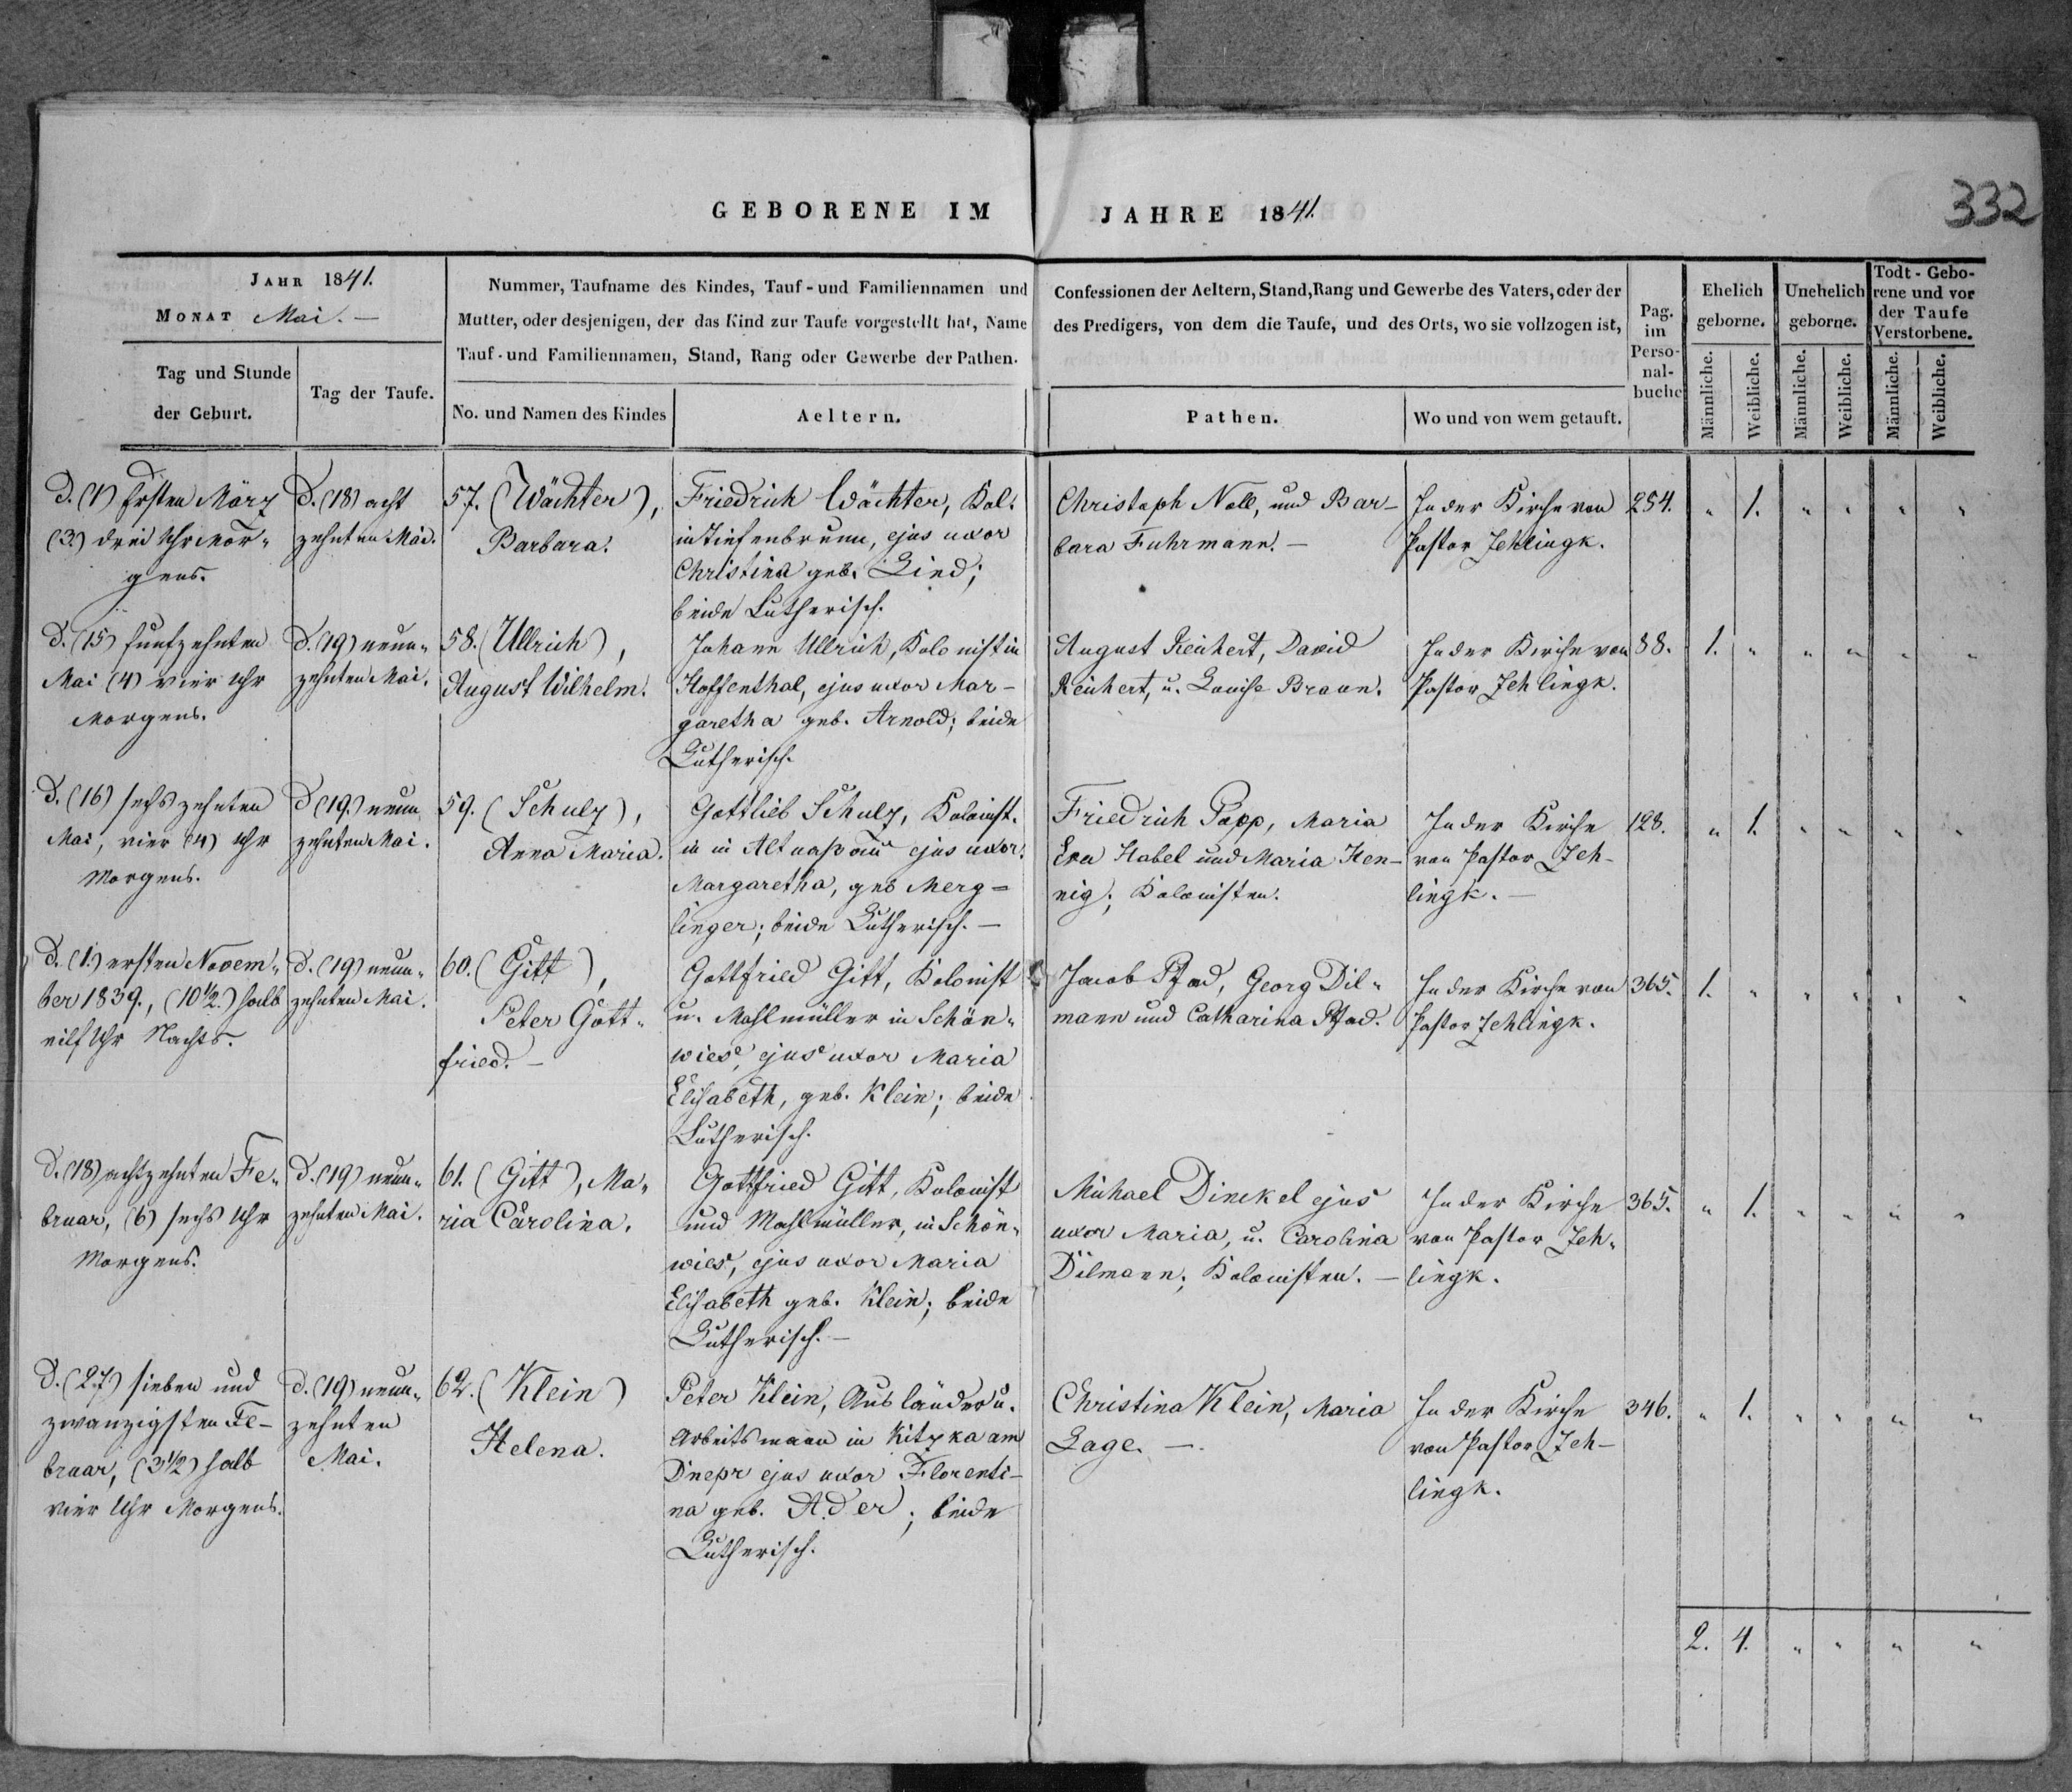 GEBORENE IM JAHRE 1841.
332
JAHR 1841.
MONAT Mai. —
Tag und Stunde
der Geburt.
Tag der Taufe.
Nummer, Taufname des Kindes, Tauf - und Familiennamen und
Mutter, oder desjenigen, der das Kind zur Taufe vorgestellt hat, Name
Tauf - und Familiennamen, Stand, Rang oder Gewerbe der Pathen.
No. und Namen des Kindes
Aeltern.
Confessionen der Aeltern, Stand, Rang und Gewerbe des Vaters, oder der
des Predigers, von dem die Taufe, und des Orts, wo sie vollzogen ist,
Pathen.
Wo und von wem getauft.
Pag.
im
Perso-
nal-
buche
Ehelich
geborne.
Unehelich
geborne.
Todt - Gebo-
rene und vor
der Taufe
Verstorbene.
Männliche.
Weibliche.
Männliche.
Weibliche.
Männliche.
Weibliche.
D. (1) Ersten März
(3.) drei Uhr Mor„
gens.
D. (18) acht
zehnten Mai.
57. (Wächter),
Barbara.
Friedrich Wächter, Kol.
in Tiefenbrunn, ejus uxor
Christina geb. Lied;
beide Lutherisch.
Christoph Noll, und Bar-
bara Fuhrmann. —
In der Kirche von
Pastor Jehlingk.
254. „ 1. „ „ „ „
D. (15) fünfzehnten
Mai (4) vier Uhr
Morgens.
D. (19) neun„
zehnten Mai.
58. (Ullrich),
August Wilhelm.
Johann Ullrich, Kolonist in
Hoffenthal, ejus uxor Mar-
garetha geb. Arnold; beide
Lutherisch.
August Reichert, David
Reichert, u. Louise Braun.
In der Kirche von
Pastor Jehlingk.
88. 1. „ „ „ „ „
D. (16) sechszehnten
Mai, vier (4) Uhr
Morgens.
D (19.) neun
zehnten Mai.
59. (Schulz),
Anna Maria.
Gottlieb Schulz, Kolonist.
in in Altnaßau ejus uxor.
Margaretha, geb Merg=
linger; beide Lutherisch. —
Friedrich Papp, Maria
Eva Habel und Maria Hen-
nig; Kolonisten.
In der Kirche
von Pastor Jeh-
lingk. —
128. „ 1. „ „ „ „
D. (1.) ersten Novem„
ber 1839., (10½.) halb
eilf Uhr Nachts.
D. (19) neun„
zehnten Mai.
60. (Gitt),
Peter Gott„
fried. —
Gottfried Gitt, Kolonist
u. Mahlmüller in Schön„
wiese, ejus uxor Maria
Elisabeth, geb. Klein; beide
Lutherisch.
Jacob Pfad, Georg Dil„
mann und Catharina Pfad.
In der Kirche von
Pastor Jehlingk.
365. 1. „ „ „ „ „
D. (18) achtzehnten Fe„
bruar, (6) sechs Uhr
Morgens.
D. (19) neun„
zehnten Mai.
61. (Gitt), Ma„
ria Carolina.
Gottfried Gitt, Kolonist
und Mahlmüller, in Schön„
wies, ejus uxor Maria
Elisabeth geb. Klein; beide
Lutherisch. —
Michael Dinckel ejus
uxor Maria, u. Carolina
Dilmann; Kolonisten. —
In der Kirche
von Pastor Jeh„
lingk.
365. „ 1. „ „ „ „
D. (27) sieben und
zwanzigsten Fe-
bruar, (3½) halb
vier Uhr Morgens.
D. (19) neun„
zehnten
Mai.
62. (Klein)
Helena.
Peter Klein, Ausländer u.
Arbeitsmann in Kitzka am
Dnepr ejus uxor Florenti-
na geb. Ader; beide
Lutherisch.
Christina Klein, Maria
Lage. —
In der Kirche
von Pastor Jeh-
lingk.
346. „ 1. „ „ „ „
2. 4. „ „ „ „